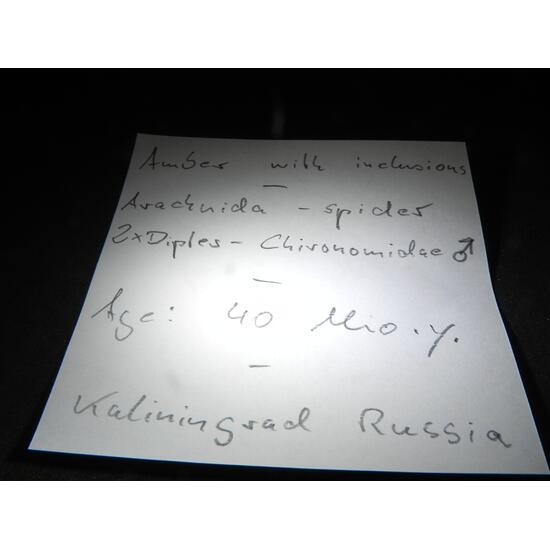 Amber with inclusions
–
Arachnida - spider
2xDipter - Chironomidae ♂
–
Age: 40 Mio.y.
–
Kaliningrad Russia